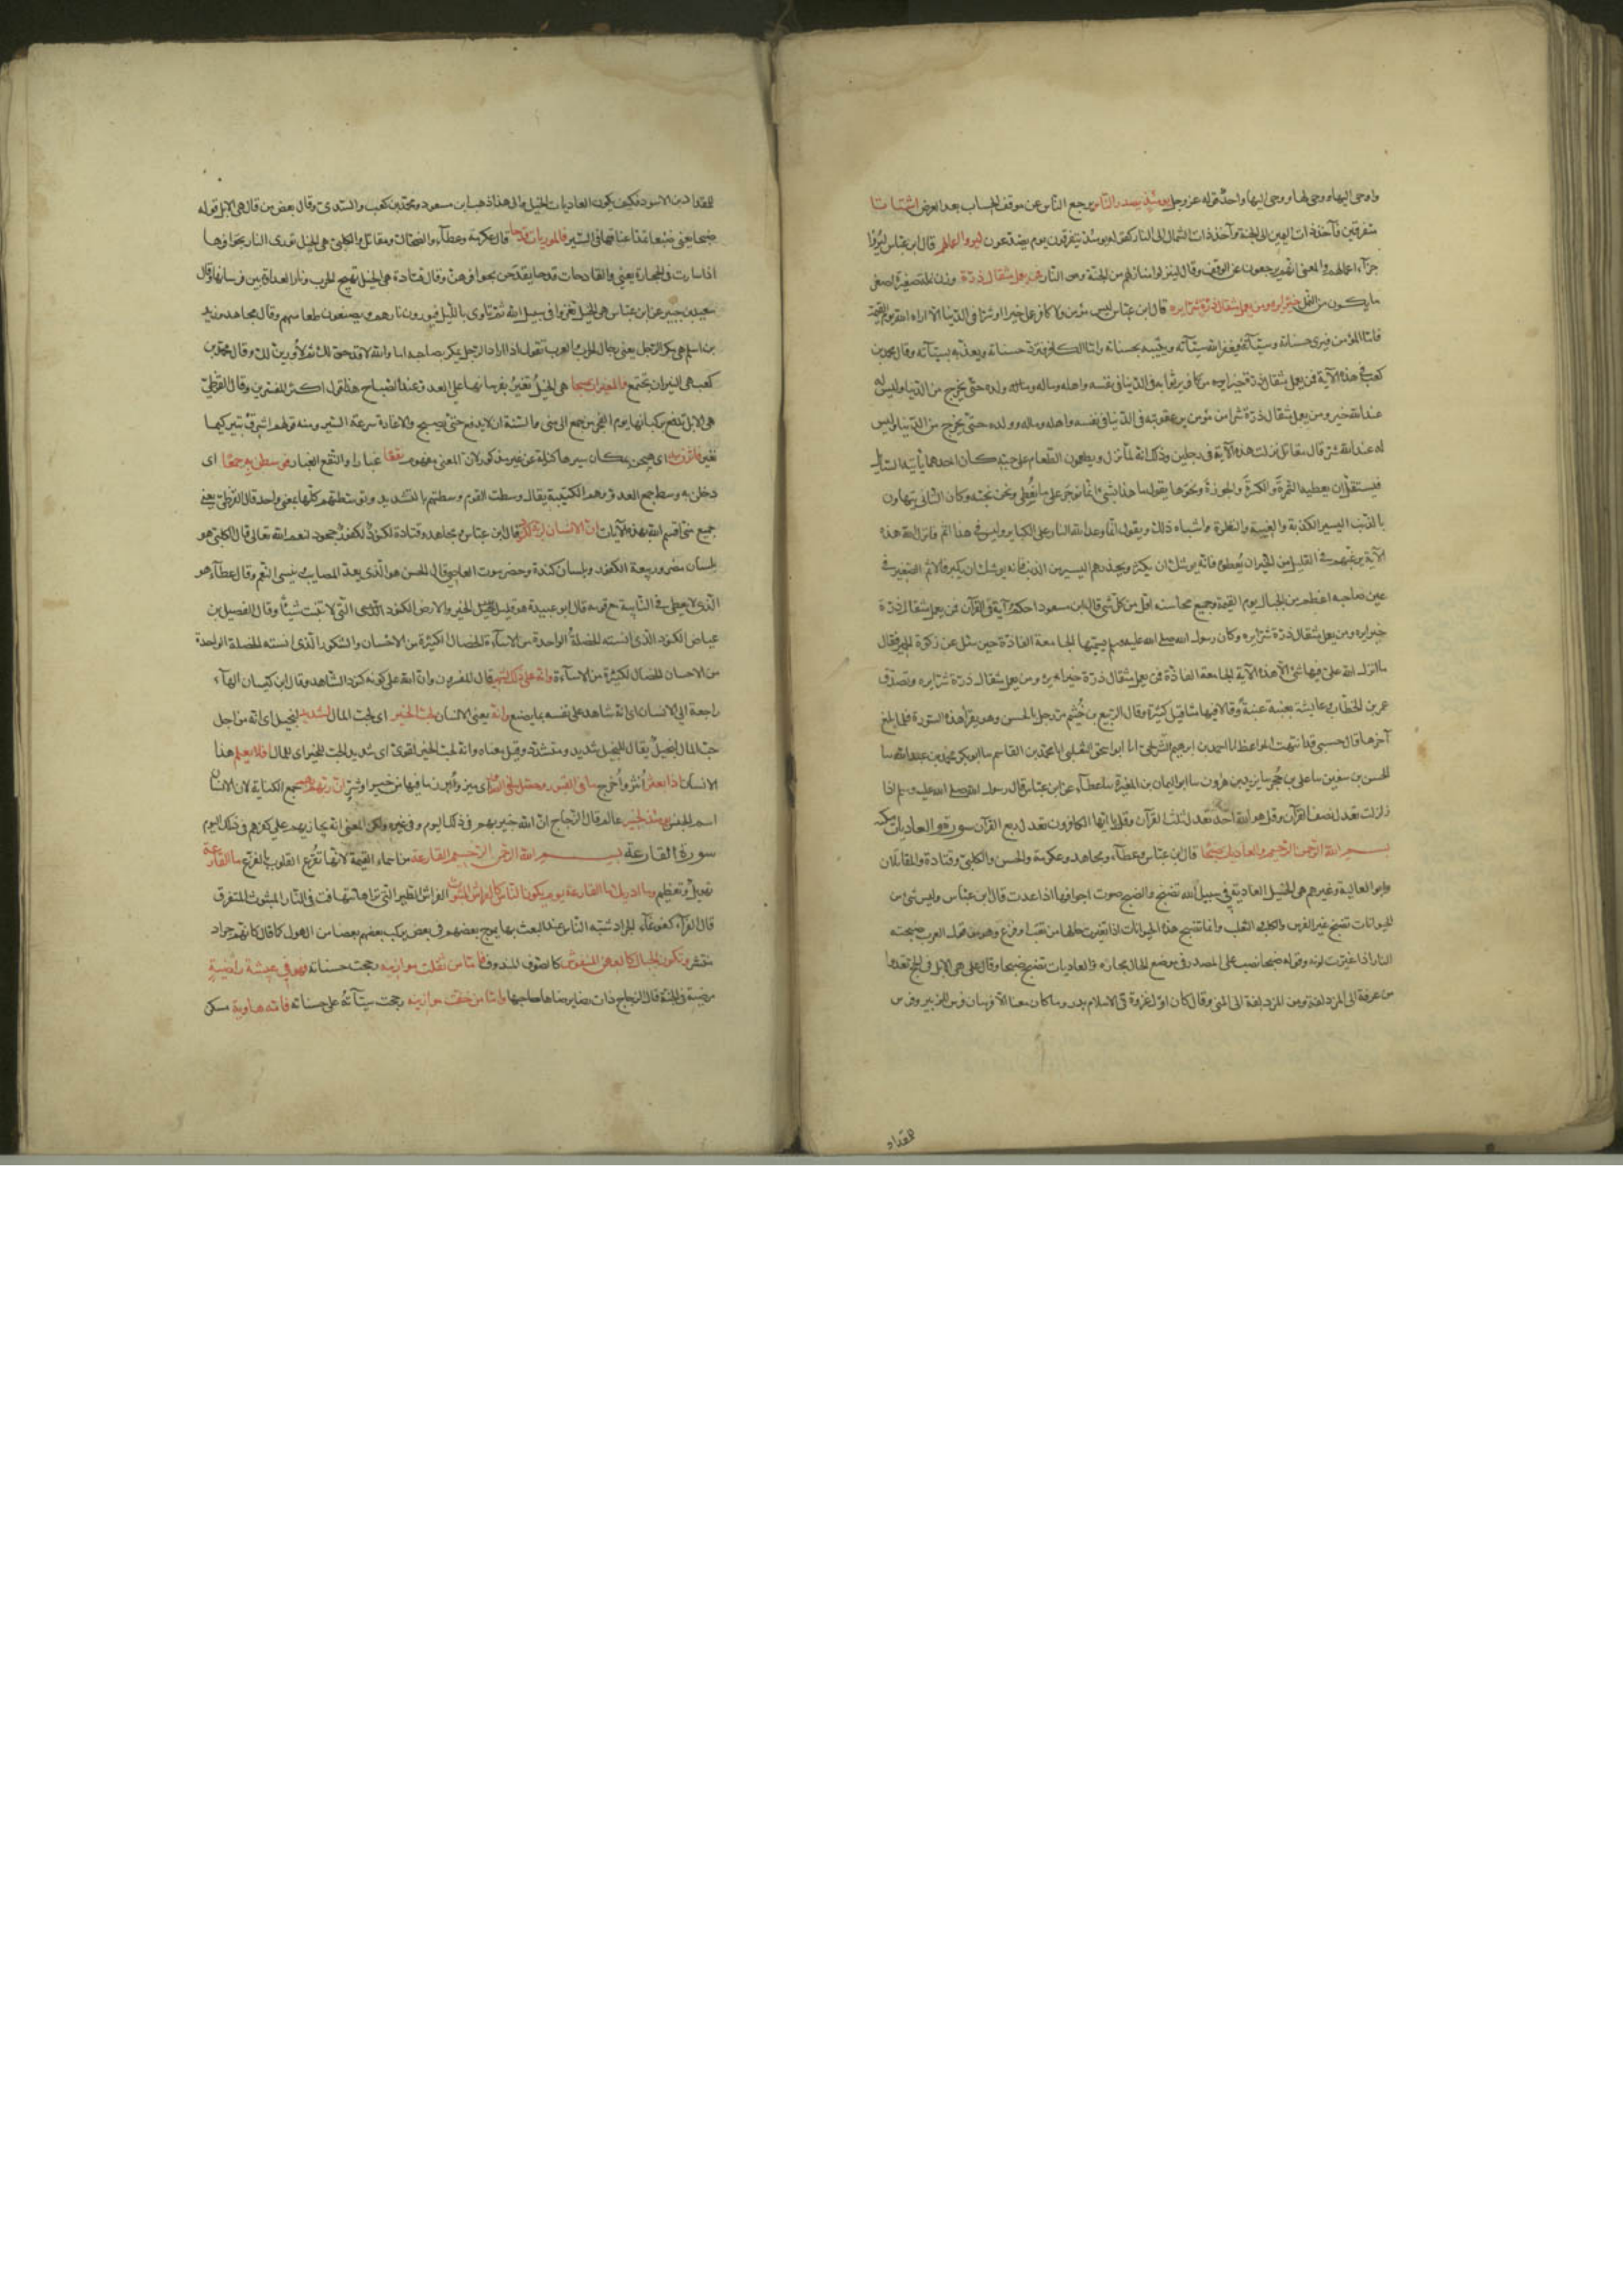 واوحى اليها ووحى لها ووحى اليها واحد قوله عز وجل يومئذ يصدر الناس يرجع الناس عن موقف الحساب بعد العرض اشتاتا
متفرقين فآخذ ذات اليمين الى الجنة وآخذ ذات الشمال الى النار كقوله يومئذ يتفرقون يوم يصدعون ليروا اعمالهم قال ابن عباس ليروا
جزاء اعمالهم والمعنى انهم يرجعون عن الموقف وقال لينزلوا منازلهم من الجنة ومن النار فمن يعمل مثقال ذرة وزن نملة صغيرة اصغر
ما يكون من النمل خيرا يره ومن يعمل مثقال ذرة شرا يره قال ابن عباس ليس مؤمن ولا كافر عمل خيرا او شرا في الدنيا الا اراه الله يوم القيمة
فاما المؤمن فيرى حسناته وسيآته فيغفر الله سيآته ويثيبه بحسناته واما الكافر فترد حسناته ويعذبه بسيآته وقال محمد بن
كعب في هذه الآية فمن يعمل مثقال ذرة خيرا يره من كافر يرى ثوابه في الدنيا في نفسه واهله وماله وولده حتى يخرج من الدنيا وليس له
عند الله خير ومن يعمل مثقال ذرة شرا من مؤمن يرى عقوبته في الدنيا في نفسه واهله وماله وولده حتى يخرج من الدنيا وليس
له عند الله شر قال مقاتل نزلت هذه الآية في رجلين وذلك انه لما نزل ويطعمون الطعام على حبه كان احدهما يأتيه السائل
فيستقل ان يعطيه التمرة والكسرة والجوزة ونحوها يقول ما هذا بشيء انما نوجر على ما نعطي ونحن نحبه وكان الثاني يتهاون
بالذنب اليسير الكذبة والغيبة والنظرة واشباه ذلك ويقول انما وعد الله النار على الكباير وليس في هذا اثم فانزل الله هذه
الآية يرغبهم في القليل من الخير ان يعطوه فانه يوشك ان يكثر ويحذرهم اليسير من الذنب فانه يوشك ان يكبر فالاثم الصغير في
عين صاحبه اعظم من الجبال يوم القيمة وجميع محاسنه اقل من كل شي قال ابن مسعود احكم آية في القرآن فمن يعمل مثقال ذرة
خيرا يره ومن يعمل مثقال ذرة شرا يره وكان رسول الله صلى الله عليه وسلم يسميها الجامعة الفاذة حين سئل عن زكوة الحمر فقال
ما انزل الله علي فيها شي الا هذه الآية الجامعة الفاذة فمن يعمل مثقال ذرة خيرا يره ومن يعمل مثقال ذرة شرا يره وتصدق
عمر بن الخطاب وعايشة بعنبة عنبة وقالا فيها مثاقيل كثيرة وقال الربيع بن خثيم مر رجل بالحسن وهو يقرأ هذه السورة فلما بلغ
آخرها قال حسبي قد انتهت الموعظة انا احمد بن ابرهيم الشريحي انا ابو اسحق الثعلبي انا محمد بن القاسم سا ابو بكر محمد بن عبدالله سا
الحسن بن سفين سا علي بن حجر سا يزيد بن هرون سا ابو اليمان بن المغيرة سا عطاء عن ابن عباس قال رسول الله صلى الله عليه وسلم اذا
زلزلت تعدل نصف القرآن وقل هو الله احد تعدل ثلث القرآن وقل يا ايها الكافرون تعدل ربع القرآن سورة والعاديات مكية
بسم الله الرحمن الرحيم والعاديات ضبحا قال ابن عباس وعطاء ومجاهد وعكرمة والحسن والكلبي وقتادة والمقاتلان
وابو العالية وغيرهم هي الخيل العادية في سبيل الله تضبح والضبح صوت اجوافها اذا عدت قال ابن عباس وليس شيء من
الحيوانات تضبح غير الفرس والكلب والثعلب وانما تضبح هذه الحيوانات اذا تغيرت حالها من تعب او فزع وهو من قول العرب ضبحته
النار اذا غيرت لونه وقوله ضبحا نصب على المصدر في موضع الحال مجازه والعاديات تضبح ضبحا وقال علي هي الابل في الحج تعدوا
من عرفة الى المزدلفة ومن المزدلفة الى المنى وقال كان اول غزوة في الاسلام بدر وما كان معنا الا فرسان فرس للزبير وفرس
للمقداد
للمقداد بن الاسود فكيف يكون العاديات الخيل والى هذا ذهب ابن مسعود ومحمد بن كعب والسدي وقال بعض من قال هي الابل قوله
ضبحا يعني ضبعا تمد اعناقها في السير فالموريات قدحا قال عكرمة وعطاء والضحاك ومقاتل والكلبي هي الخيل توري النار بحوافرها
اذا سارت في الحجارة يعني والقادحات قدحا يقدحن بحوافرهن وقال قتادة هي الخيل تهيج الحرب ونار العداوة بين فرسانها وقال
سعيد بن جبير عن ابن عباس هي الخيل تغزوا في سبيل الله ثم تأوى بالليل فيورون نارهم ويصنعون طعامهم وقال مجاهد وزيد
بن اسلم هي مكر الرجل يعني رجال الحرب والعرب تقول اذا اراد الرجل يمكر بصاحبه اما والله لاقدحن لك ثم لاورين لك وقال محمد بن
كعب هي النيران تجتمع فالمغيرات صبحا هي الخيل تغير بفرسانها على العدو عند الصباح هذا قول اكثر المفسرين وقال القرظي
هي الابل تدفع بركبانها يوم النحر من جمع الى منى والسنة ان لا يدفع حتى يصبح والاغارة سرعة السير ومنه قولهم اشرق ثبير كيما
نغير فاثرن به اي هيجن بمكان سيرها كناية عن غير مذكور لان المعنى مفهوم نقعا غبارا والنقع الغبار فوسطن به جمعا اي
دخلن به وسط جمع العدو وهم الكتيبة يقال وسطت القوم ووسطتهم بالتشديد وتوسطتهم كلها بمعنى واحد قال القرظي يعني
جميع منى اقسم الله بهذه الآيات ان الانسان لربه لكنود قال ابن عباس ومجاهد وقتادة لكنود لكفور جحود لنعم الله تعالى قال الكلبي هو
بلسان مضر وربيعة الكفور وبلسان كندة وحضرموت العاصي قال الحسن هو الذي يعد المصايب وينسى النعم وقال عطاء هو
الذي لا يعطي في النايبة مع قومه قال ابو عبيدة هو قليل الخير والارض الكنود التي لا تنبت شيئا وقال الفضيل بن
عياض الكنود الذي انسته الخصلة الواحدة من الاساءة الخصال الكثيرة من الاحسان والشكور الذي انسته الخصلة الواحدة
من الاحسان الخصال الكثيرة من الاساءة وانه على ذلك لشهيد قال المفسرون وان الله على كونه كنودا لشاهد وقال ابن كيسان الهاء
راجعة الى الانسان اي انه شاهد على نفسه بما يصنع وانه يعني الانسان لحب الخير اي لحب المال لشديد لبخيل اي انه من اجل
حب المال لبخيل يقال للبخيل شديد ومتشدد وقيل معناه وانه لحب الخير لقوي اي شديد الحب للخير اي المال افلا يعلم هذا
الانسان اذا بعثر اثير واخرج ما في القبور وحصل ما في الصدور اي ميز وابرز ما فيها من خير او شر ان ربهم بهم جمع الكناية لان الانسان
اسم الجنس يومئذ لخبير عالم قال الزجاج ان الله خبير بهم في ذلك اليوم وفي غيره ولكن المعنى انه يجازيهم على كفرهم في ذلك اليوم
سورة القارعة بسم الله الرحمن الرحيم القارعة من اسماء القيمة لانها تقرع القلوب بالفزع ما القارعة
تهويل وتعظيم وما ادريك ما القارعة يوم يكون الناس كالفراش المبثوث الفراش الطير التي تراها تتهافت في النار المبثوث المتفرق
قال الفراء كغوغاء الجراد شبه الناس عند البعث بها يموج بعضهم في بعض ويركب بعضهم بعضا من الهول كما قال كانهم جراد
منتشر وتكون الجبال كالعهن المنفوش كالصوف المندوف فاما من ثقلت موازينه رجحت حسناته فهو في عيشة راضية
مرضية في الجنة قال الزجاج ذات رضا يرضاها صاحبها واما من خفت موازينه رجحت سيآته على حسناته فامه هاوية مسكنه